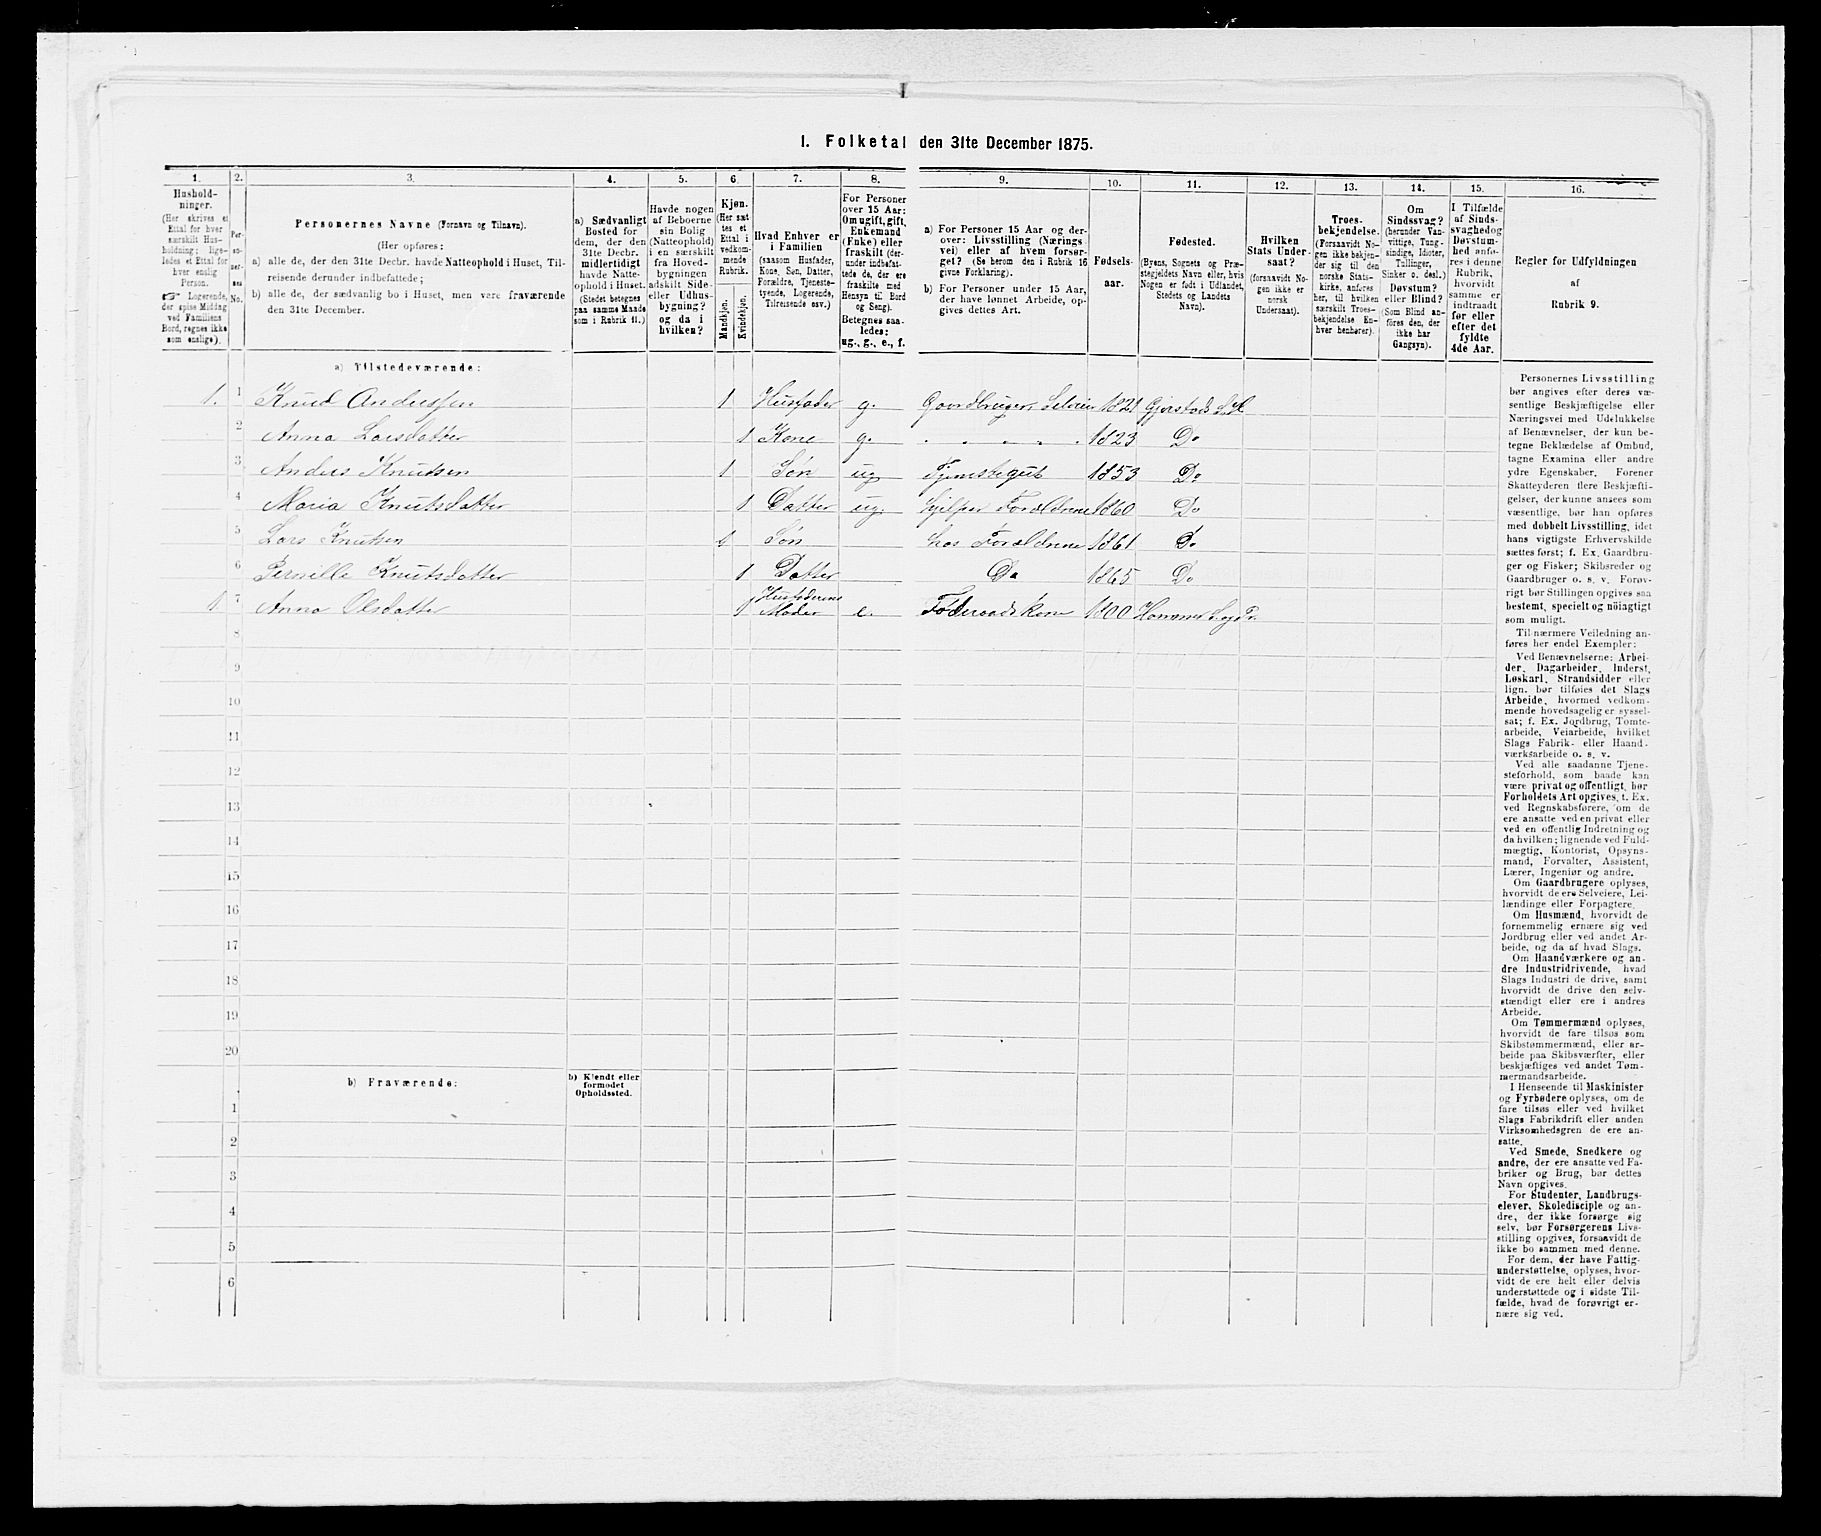 1. Folketal den 31te December 1875.
1. 2. 3. 4. 5. 6. 7. 8. 9. 10. 11. 12. 13. 14. 15. 16.
Hushold-
ninger.
(Her skrives et
Ettal for hver
særskilt Hus-
holdning; lige-
ledes et Ettal for
hver enslig
Person.
☞ Logerende,
der spise Middag
ved Familiens
Bord, regnes ikke
som enslige).
Per-
so-
ner-
nes
No.
Personernes Navne (Fornavn og Tilnavn).
(Her opføres:
a) alle de, der den 31te Decbr. havde Natteophold i Huset, Til-
reisende derunder indbefattede;
b) alle de, der sædvanlig bo i Huset, men vare fraværende
den 31te December.
a) Sædvanligt
Bosted for
dem, der den
31te Decbr.
midlertidigt
havde Natte-
ophold i Huset.
(Stedet betegnes
paa samme Maade
som i Rubrik 11.)
Havde nogen
af Beboerne
sin Bolig
(Natteophold)
i en særskilt
fra Hoved-
bygningen
adskilt Side-
eller Udhus-
bygning?
og da i
hvilken?
Kjøn.
(Her sæt
tes et
Ettal i
vedkom-
mende
Rubrik.
Mandkjøn.
Kvindekjøn.
Hvad Enhver er
i Familien
(saasom Husfader,
Kone, Søn, Datter,
Forældre, Tjeneste-
tyende, Logerende,
Tilreisende osv.)
For Personer
over 15 Aar:
Om ugift, gift,
Enkemand
(Enke) eller
fraskilt (der-
under indbefat-
tede de, der ere
fraskilte med
Hensyn til Bord
og Seng).
Betegnes saa-
ledes:
ug., g., e., f.
a) For Personer 15 Aar og der-
over: Livsstilling (Nærings
vei) eller af hvem forsør-
get? (Se herom den i Rubrik 16
givne Forklaring).
b) For Personer under 15 Aar,
der have lønnet Arbeide, op-
gives dettes Art.
Fødsels-
aar.
Fødested.
(Byens, Sognets og Præ-
stegjeldets Navn eller, hvis
Nogen er født i Udlandet,
Stedets og Landets
Navn).
Hvilken
Stats Under-
saat?
(forsaavidt No-
gen ikke er
norsk
Undersaat).
Troes-
bekjendelse.
(Forsaavidt No-
gen ikke bekjen-
der sig til den
norske Stats-
kirke, anføres
her, til hvilken
særskilt Troes-
bekjendelse En-
hver henhører).
Om
Sindssvag?
(herunder Van-
vittige, Tung-
sindige, Idioter,
Tullinger,
Sinker o. desl.)
Døvstum?
eller Blind?
(Som Blind an-
føres den, der
ikke har
Gangsyn).
I Tilfælde
af Sinds-
svaghed og
Døvstum-
hed anfø-
res i denne
Rubrik,
hvorvidt
samme er
indtraadt
før eller
efter det
fyldte
4de Aar.
Regler for Udfyldningen
af
Rubrik 9.
a) Tilstedeværende:
1. 1 Knud Anderssen 1 Husfader g. Gaardbruger, Selveier 1821 Gjerstads
2 Anna Larsdatter 1 Kone g. " " " " " 1823 Do
3 Anders Knutsen 1 Søn ug Tjenstegut 1853 Do
4 Maria Knutsdatter 1 Datter ug. hjelper Forældrene 1860 Do
5 Lars Knutsen 1 Søn hos Forældrene 1861 Do
6 Pernille Knutsdatter 1 Datter Do 1865 Do
1 7 Anna Olsdatter 1 Husfaderens Moder e. Føderaadskone 1800
8
9
10
11
12
13
14
15
16
17
18
19
20
b) Fraværende:
b) Kjendt eller
formodet
Opholdssted.
1
2
3
4
5
6
Personernes Livsstilling
bør angives efter deres væ-
sentlige Beskjæftigelse eller
Næringsvei med Udelukkelse
af Benævnelser, der kun be-
tegne Beklædelse af Ombud,
tagne Examina eller andre
ydre Egenskaber. Forener
Skatteyderen flere Beskjæfti-
gelser, der kunne ansees som
væsentlige, bør han opføres
med dobbelt Livsstilling, idet
hans vigtigste Erhvervskilde
sættes først; f. Ex. Gaardbru-
ger og Fisker; Skibsreder og
Gaardbruger o. s. v. Forøv-
rigt bør Stillingen opgives saa
bestemt, specielt og nöiagtigt
som muligt.
Til nærmere Veiledning an-
føres her endel Exempler:
Ved Benævnelserne: Arbei-
der, Dagarbeider, Inderst,
Løskarl, Strandsidder eller
lign. bør tilføies det Slags
Arbeide, hvormed vedkom-
mende hovedsagelig er syssel-
sat; f. Ex. Jordbrug, Tomte-
arbeide, Veiarbeide, hvilket
Slags Fabrik- eller Haand-
værksarbeide o. s. v.
Ved alle saadanne Tjene-
steforhold, som baade kan
være privat og offentligt, bør
Forholdets Art opgives, t. Ex.
ved Regnskabsførere, om de
ere ansatte ved en privat eller
ved en offentlig Indretning og
da hvilken; lignende ved Fuld-
mægtig, Kontorist, Opsyns-
mand, Forvalter, Assistent,
Lærer, Ingeniør og andre.
Om Gaardbrugere oplyses,
hvorvidt de ere Selveiere, Lei-
lændinge eller Forpagtere.
Om Husmænd, hvorvidt de
fornemmelig ernære sig ved
Jordbrug eller ved andet Ar-
beide, og da af hvad Slags.
Om Haandværkere og an-
dre Industridrivende, hvad
Slags Industri de drive, samt
hvorvidt de drive den selv-
stændigt eller ere i andres
Arbeide.
Om Tømmermænd oplyses,
hvorvidt de fare tilsøs som
Skibstømmermænd, eller ar-
beide paa Skibsværfter, eller
beskjæftiges ved andet Tøm-
mermandsarbeide.
I Henseende til Maskinister
og Fyrbødere oplyses, om de
fare tilsøs eller ved hvilket
Slags Fabrikdrift eller anden
Virksomhedsgren de ere an-
satte.
Ved Smede, Snedkere og
andre, der ere ansatte ved Fa-
briker og Brug, bør dettes
Navn opgives.
For Studenter, Landbrugs-
elever, Skoledisciple og an-
dre, der ikke forsørge sig
selv, bør Forsørgerens Livs-
stilling opgives, forsaavidt de
ikke bo sammen med denne.
For dem, der have Fattig-
understøttelse, oplyses, hvor-
vidt de ere helt eller delvis
understøttede og i sidste Til-
fælde, hvad de forøvrigt er-
nære sig ved.